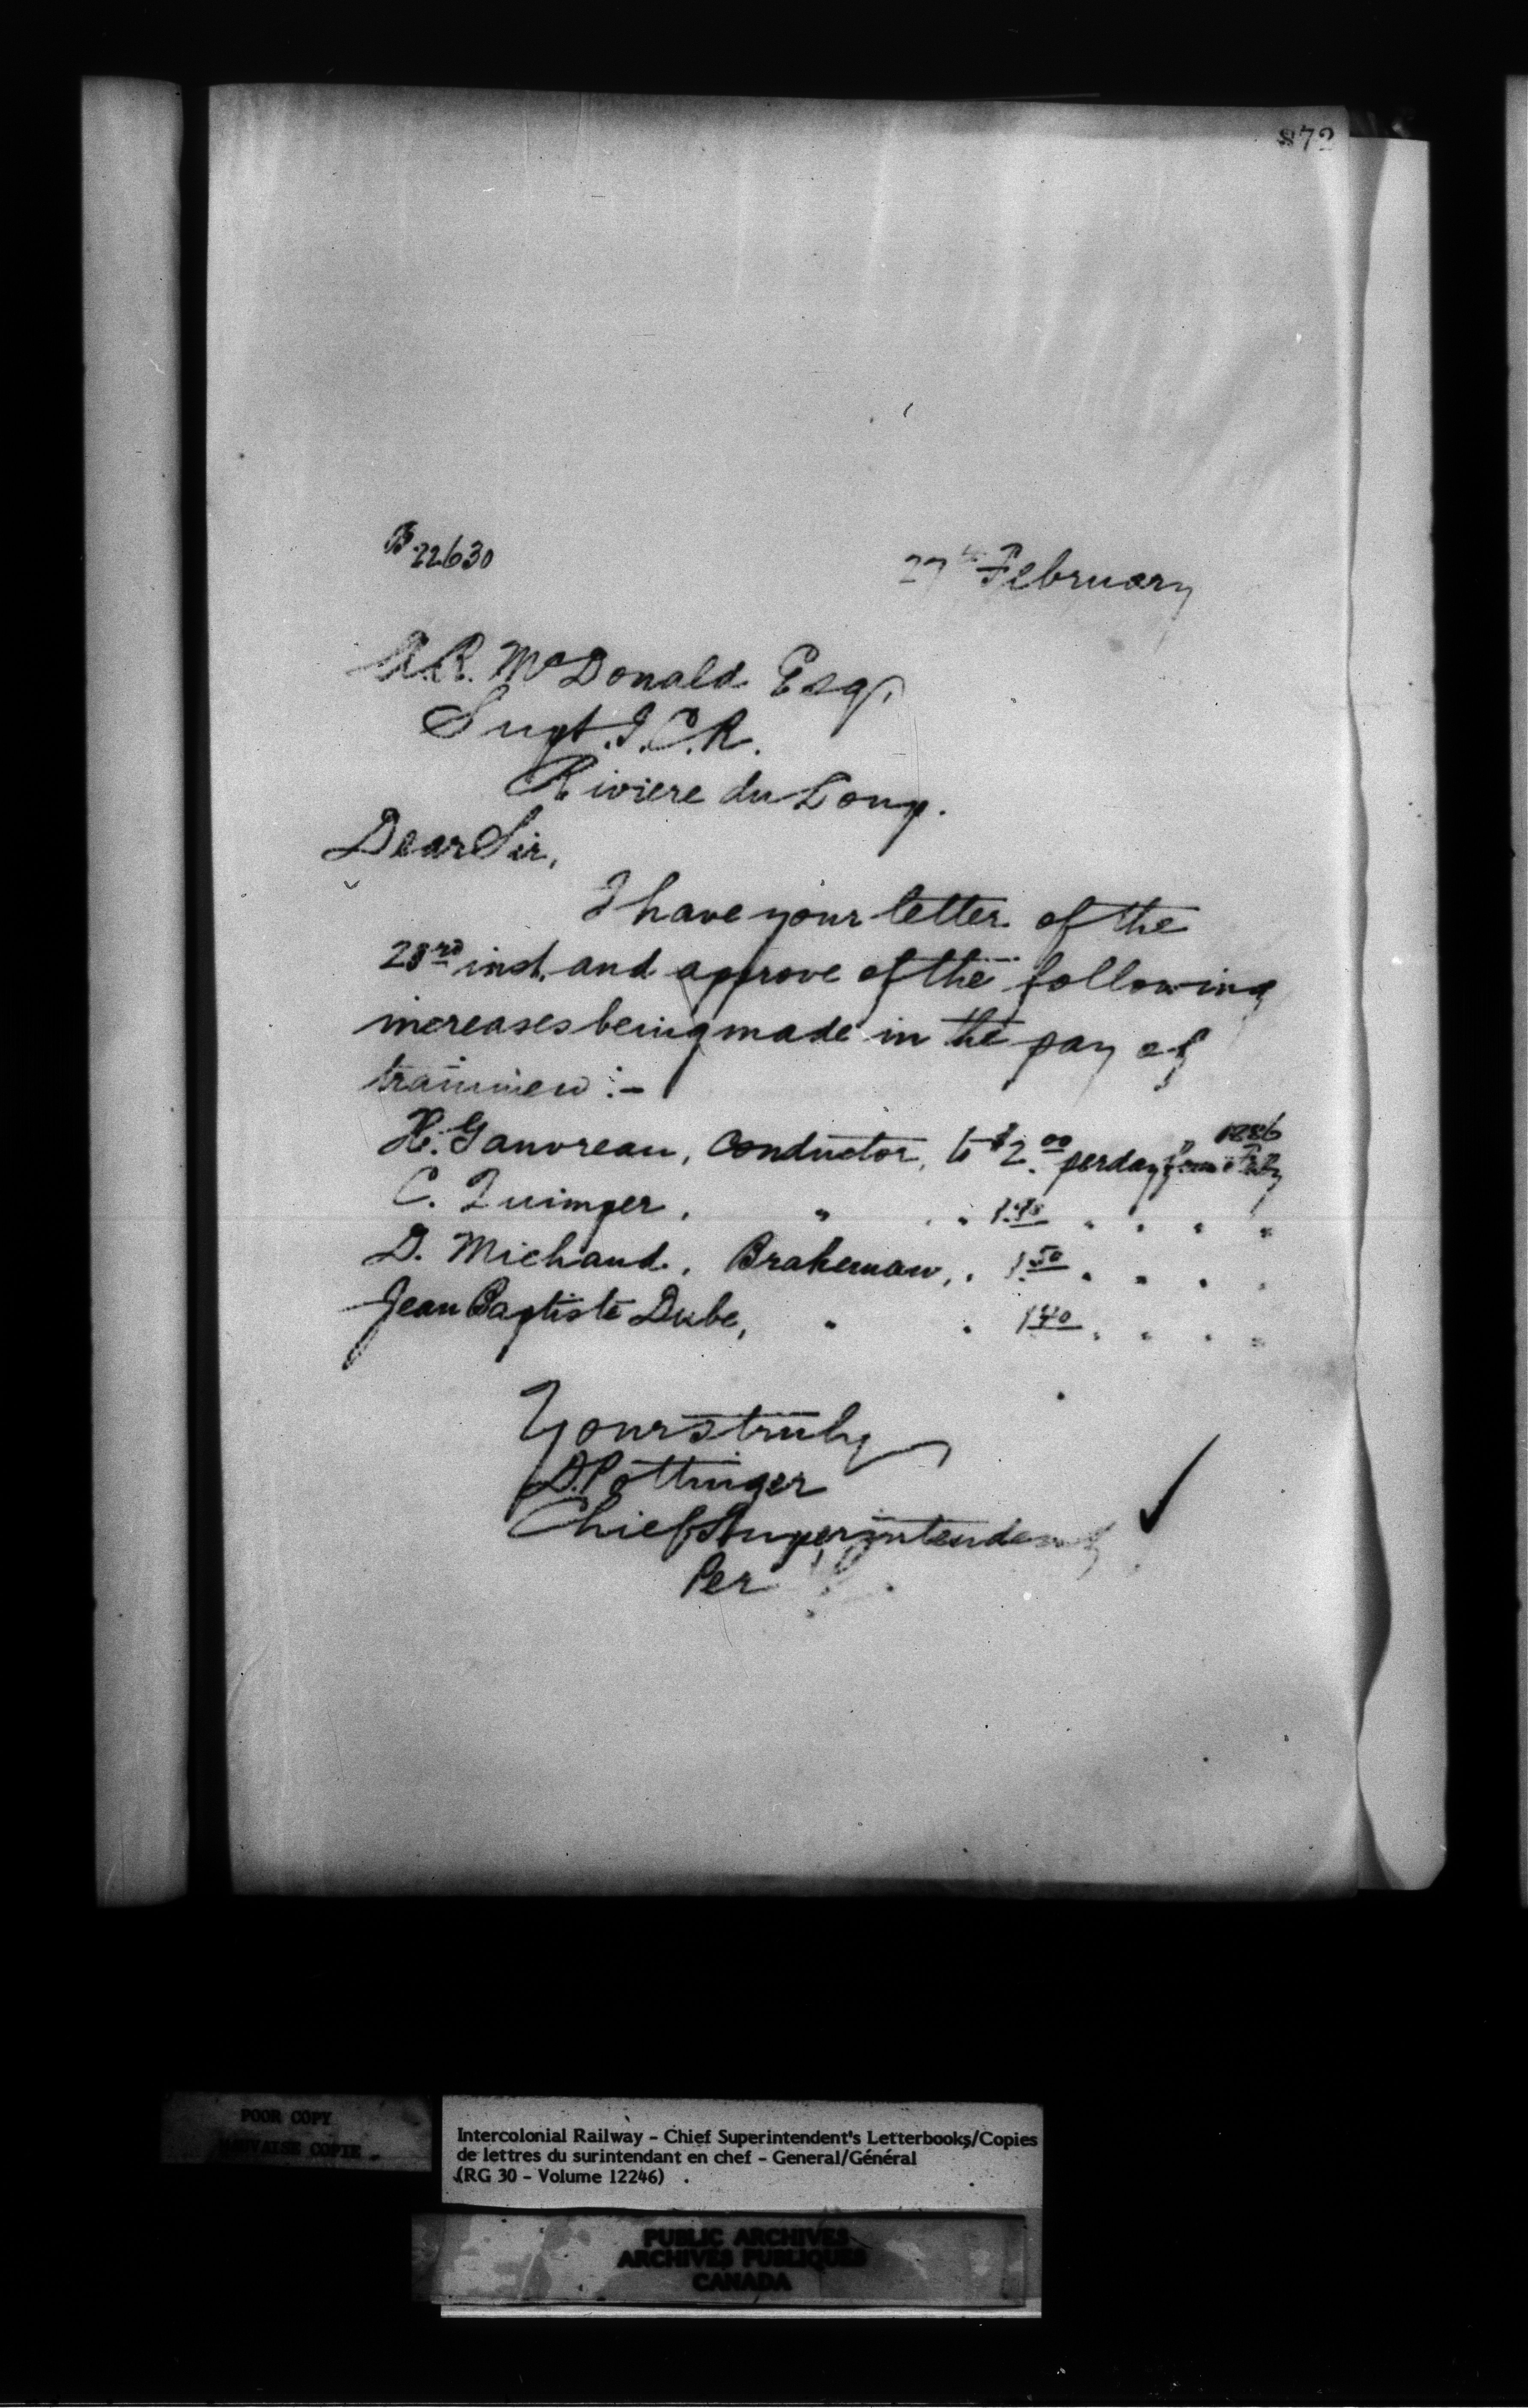 872
B 22630
27th February
A.R. McDonald Esq.
Supt. I.C.R.
Riviere du Loup.
Dear Sir,
I have your letter of the
23rd inst. and approve of the following
increases being made in the pay of
trainmen :-
H. Gauvreau, Conductor, to $2.00 per day from Feby 1886
C. Quimper, " " " " " "
D. Michaud, Brakeman, " 1.50 " " " "
Jean Baptiste Dube, " " 1.40 " " " "
Yours truly
D. Pottinger
Chief Superintendent
Per
POOR COPY
MAUVAISE COPIE
Intercolonial Railway - Chief Superintendent's Letterbooks/Copies
de lettres du surintendant en chef - General/Général
(RG 30 - Volume 12246)
PUBLIC ARCHIVES
ARCHIVES PUBLIQUES
CANADA